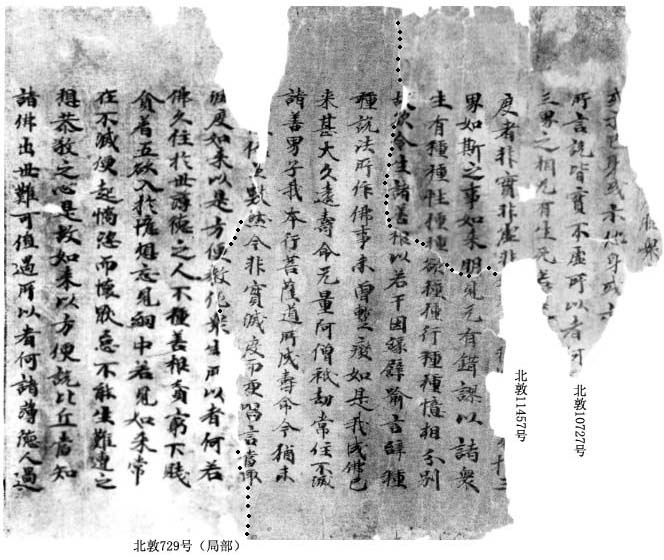 或示己身或示他身或示
所言說皆實不虛所以者何
三界之相无有生死
度者非實非虛非
界如斯之事如來明見无有錯謬以諸衆
生有種種性種種欲種種行種種憶想分別
故欲令生諸善根以若干因緣譬喻言辭種
種說法所作佛事未曾暫廢如是我成佛已
來甚大久遠壽命无量阿僧祇劫常住不滅
諸善男子我本行菩薩道所成壽命今猶未
上數然今非實滅度而便唱言當取
滅度如來以是方便教化衆生所以者何若
佛久住於世薄德之人不種善根貧窮下賤
貪著五欲入於憶想妄見網中若見如來常
在不滅便起憍恣而懷厭怠不能生難遭之
想恭敬之心是故如來以方便說比丘當知
諸佛出世難可值遇所以者何諸薄德人過
北敦10727号
北敦11457号
北敦729号（局部）